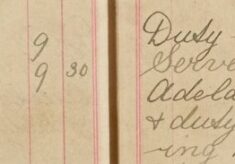 9
9 30
Dusy
Serve
Adela
& dusy
ing